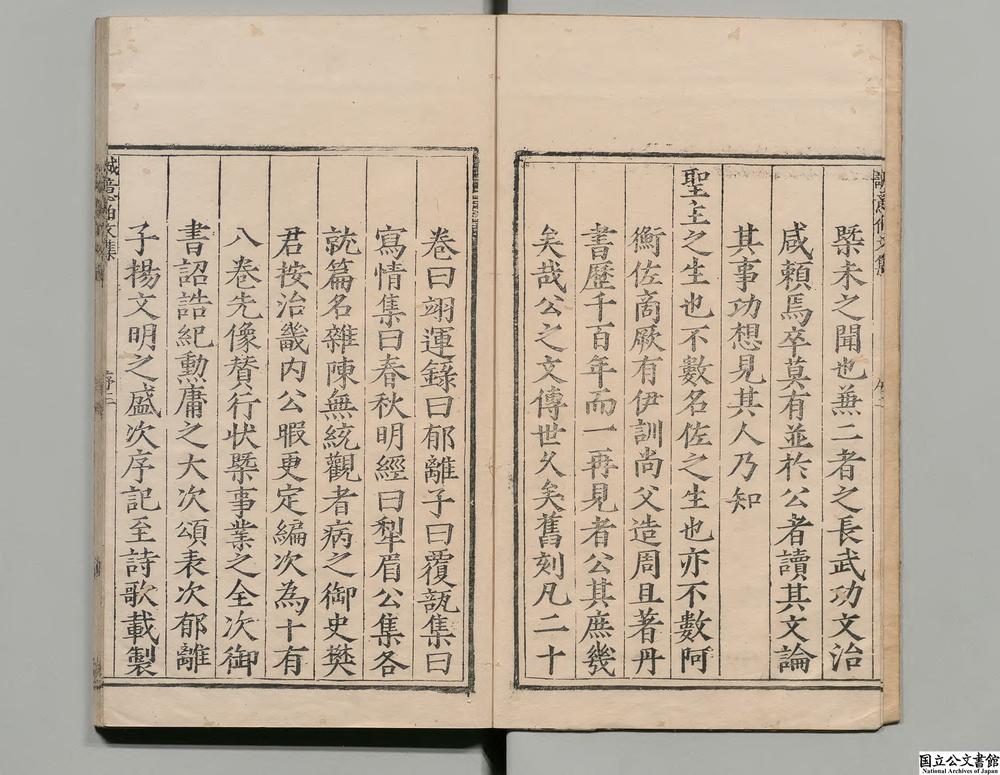 槩未之聞也兼二者之長武功文治
咸賴焉卒莫有並於公者讀其文論
其事功想見其人乃知
聖主之生也不數名佐之生也亦不數阿
衡佐商厥有伊訓尚父造周且著丹
書歷千百年而一再見者公其庶幾
矣哉公之文傳世久矣舊刻凡二十
卷曰翊運錄曰郁離子曰覆瓿集曰
寫情集曰春秋明經曰犁眉公集各
就篇名雜陳無統觀者病之御史樊
君按治畿内公暇更定編次為十有
八卷先像賛行狀槩事業之全次御
書詔誥紀勳庸之大次頌表次郁離
子楊文明之盛次序記至詩歌載製
誠意伯文集
序三
国立公文書館
National Archives of Japan